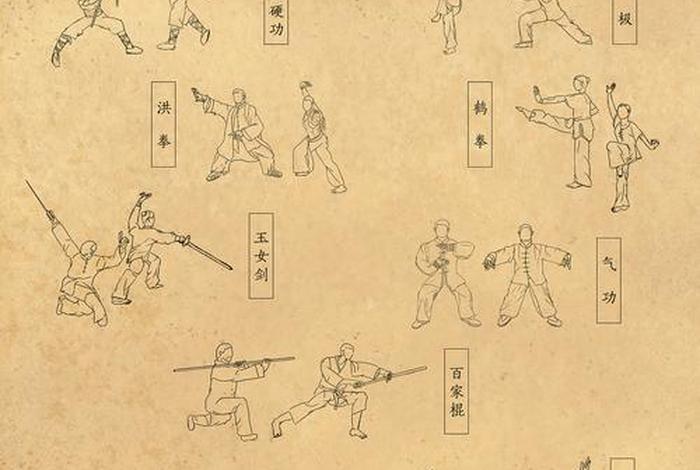 硬功
极
洪拳
鹤拳
玉女剑
气功
百家棍